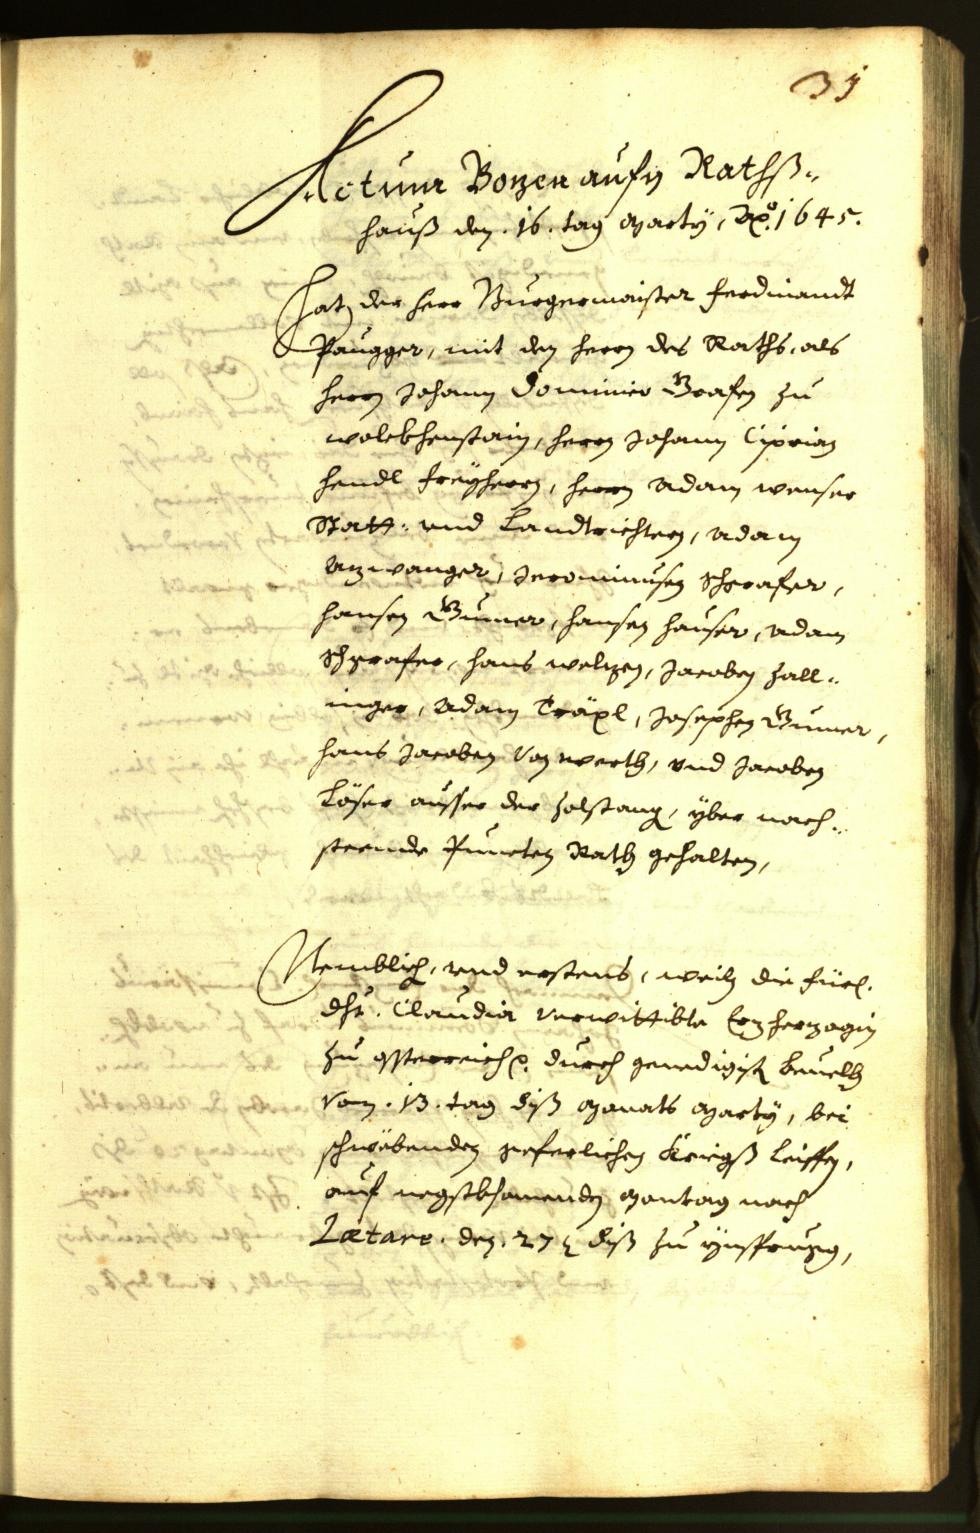 31
Actum Bozen aufm Rathß„
hauß den .16. tag Marty, Ao. 1645.
Hat der herr Burgermaister Ferdinandt
Paugger, mit den herrn des Raths, als
herrn Johann Dominico Grafen zu
wolckhenstain, herrn Johann Ciprian
hendl Freyherrn, herrn Adam wenser
Statt: und Landtrichtern, Adam
Azwanger, Jeronimusen Schgrafer,
hansen Gumer, hansen hauser, Adam
Schgrafer, hans welzen, Jacoben Zall„
inger, Adam Träxl, Josephen Gumer,
hans Jacoben von werth, und Jacoben
Löser ausser der Zolstang, yber nach„
steende Puncten Rath gehalten,
Nemblich, und erstens, weiln die Fürl.
dht. Claudia verwittibte Erzherzogin
zu Össterreich durch genedigist bevelh
vom .13. tag diß Monats Marty, bei
schwebenden geferlichen Kriegß leiffen,
auf negstkhomenden Montag nach
Lætare. den .27 diß zu Ynsprugg,